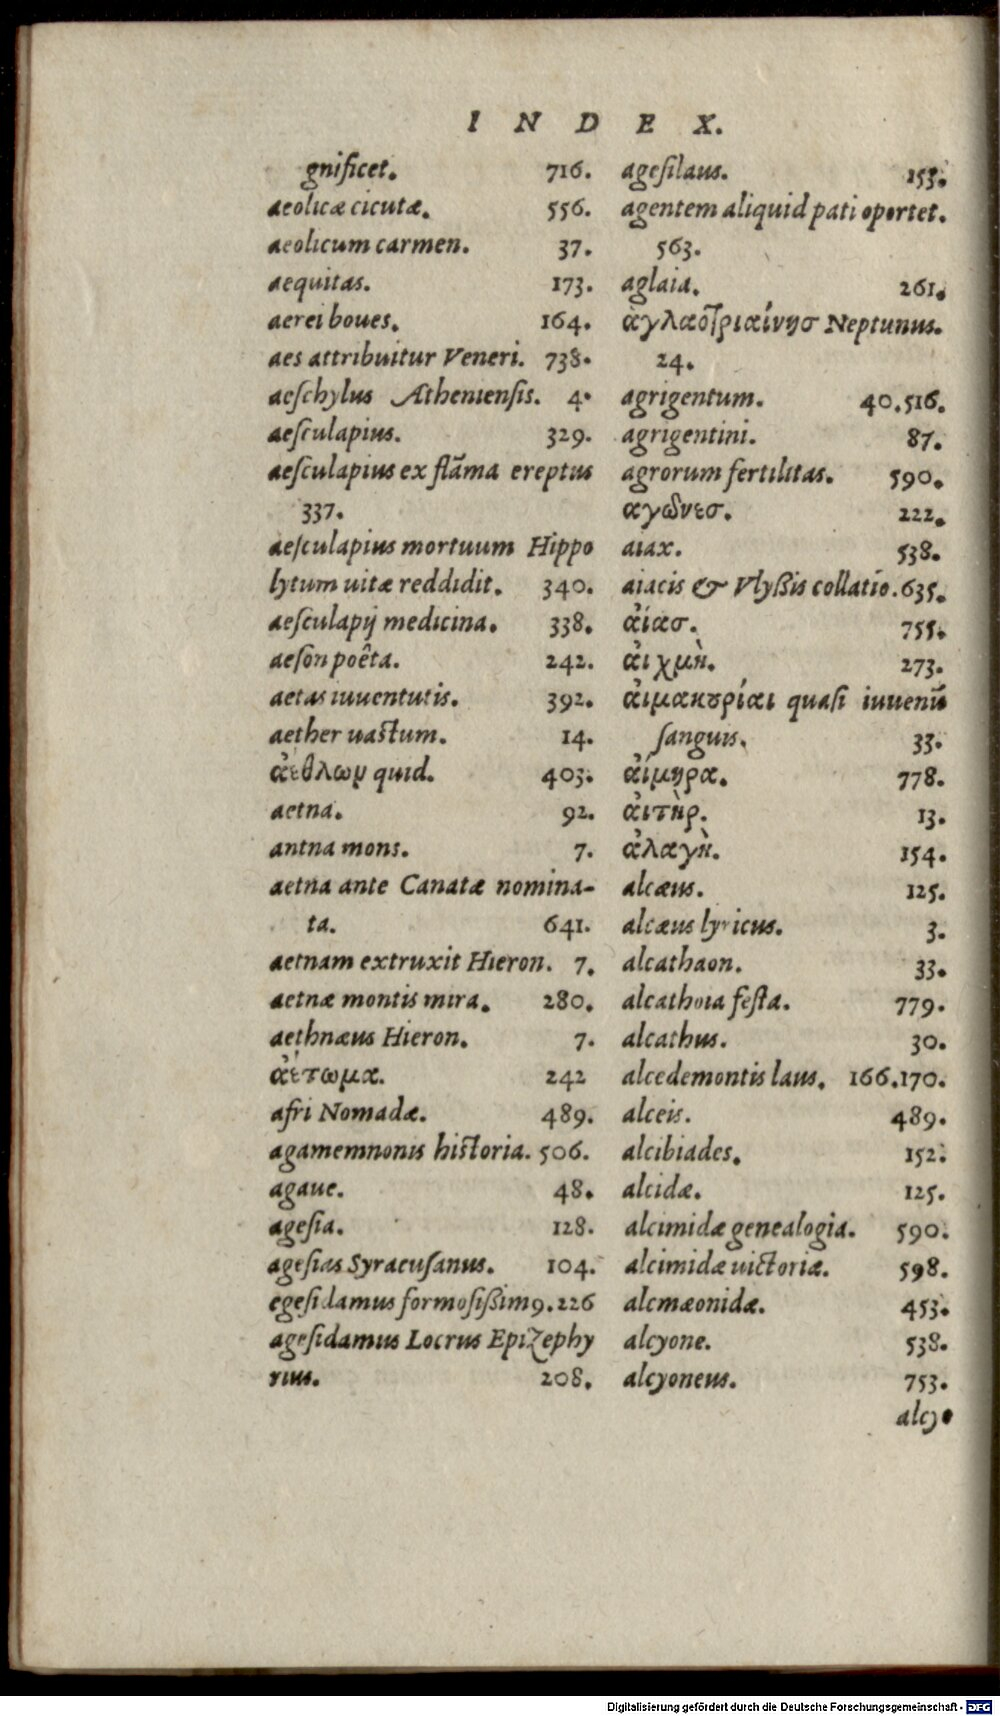 INDEX.
gnificet. 716.
aeolicæ cicutæ. 556.
aeolicum carmen. 37.
aequitas. 173.
aerei boues. 164.
aes attribuitur Veneri. 738.
aeſchylus Athenienſis. 4.
aeſculapius. 329.
aeſculapius ex flãma ereptus
337.
aeſculapius mortuum Hippo
lytum uitæ reddidit. 340.
aeſculapij medicina. 338.
aeſon poêta. 242.
aetas iuuentutis. 392.
aether uastum. 14.
ἀεθλωμ quid. 403.
aetna. 92.
antna mons. 7.
aetna ante Canatæ nomina-
ta. 641.
aetnam extruxit Hieron. 7.
aetnæ montis mira. 280.
aethnæus Hieron. 7.
ἀέτωμα. 242
afri Nomadæ. 489.
agamemnonis historia. 506.
agaue. 48.
ageſia. 128.
ageſias Syracuſanus. 104.
egeſidamus formoſißimꝰ. 226
ageſidamus Locrus Epizephy
rius. 208.
ageſilaus. 153.
agentem aliquid pati oportet.
563.
aglaia. 261.
ἀγλαοτριαίνησ Neptunus.
24.
agrigentum. 40.516.
agrigentini. 87.
agrorum fertilitas. 590.
αγωνεσ. 222.
aiax. 538.
aiacis & Vlyßis collatio. 635.
ἀίασ. 755.
ἀιχμὴ. 273.
ἀιμακȣρίαι quaſi iuuenũ
ſanguis. 33.
ἀίμηρα. 778.
ἀιτὴρ. 13.
ἀλαγὴ. 154.
alcæus. 125.
alcæus lyricus. 3.
alcathaon. 33.
alcathoia feſta. 779.
alcathus. 30.
alcedemontis laus. 166.170.
alceis. 489.
alcibiades. 152.
alcidæ. 125.
alcimidæ genealogia. 590.
alcimidæ uictoriæ. 598.
alcmæonidæ. 453.
alcyone. 538.
alcyoneus. 753.
alcyo
Digitalisierung gefördert durch die Deutsche Forschungsgemeinschaft - DFG